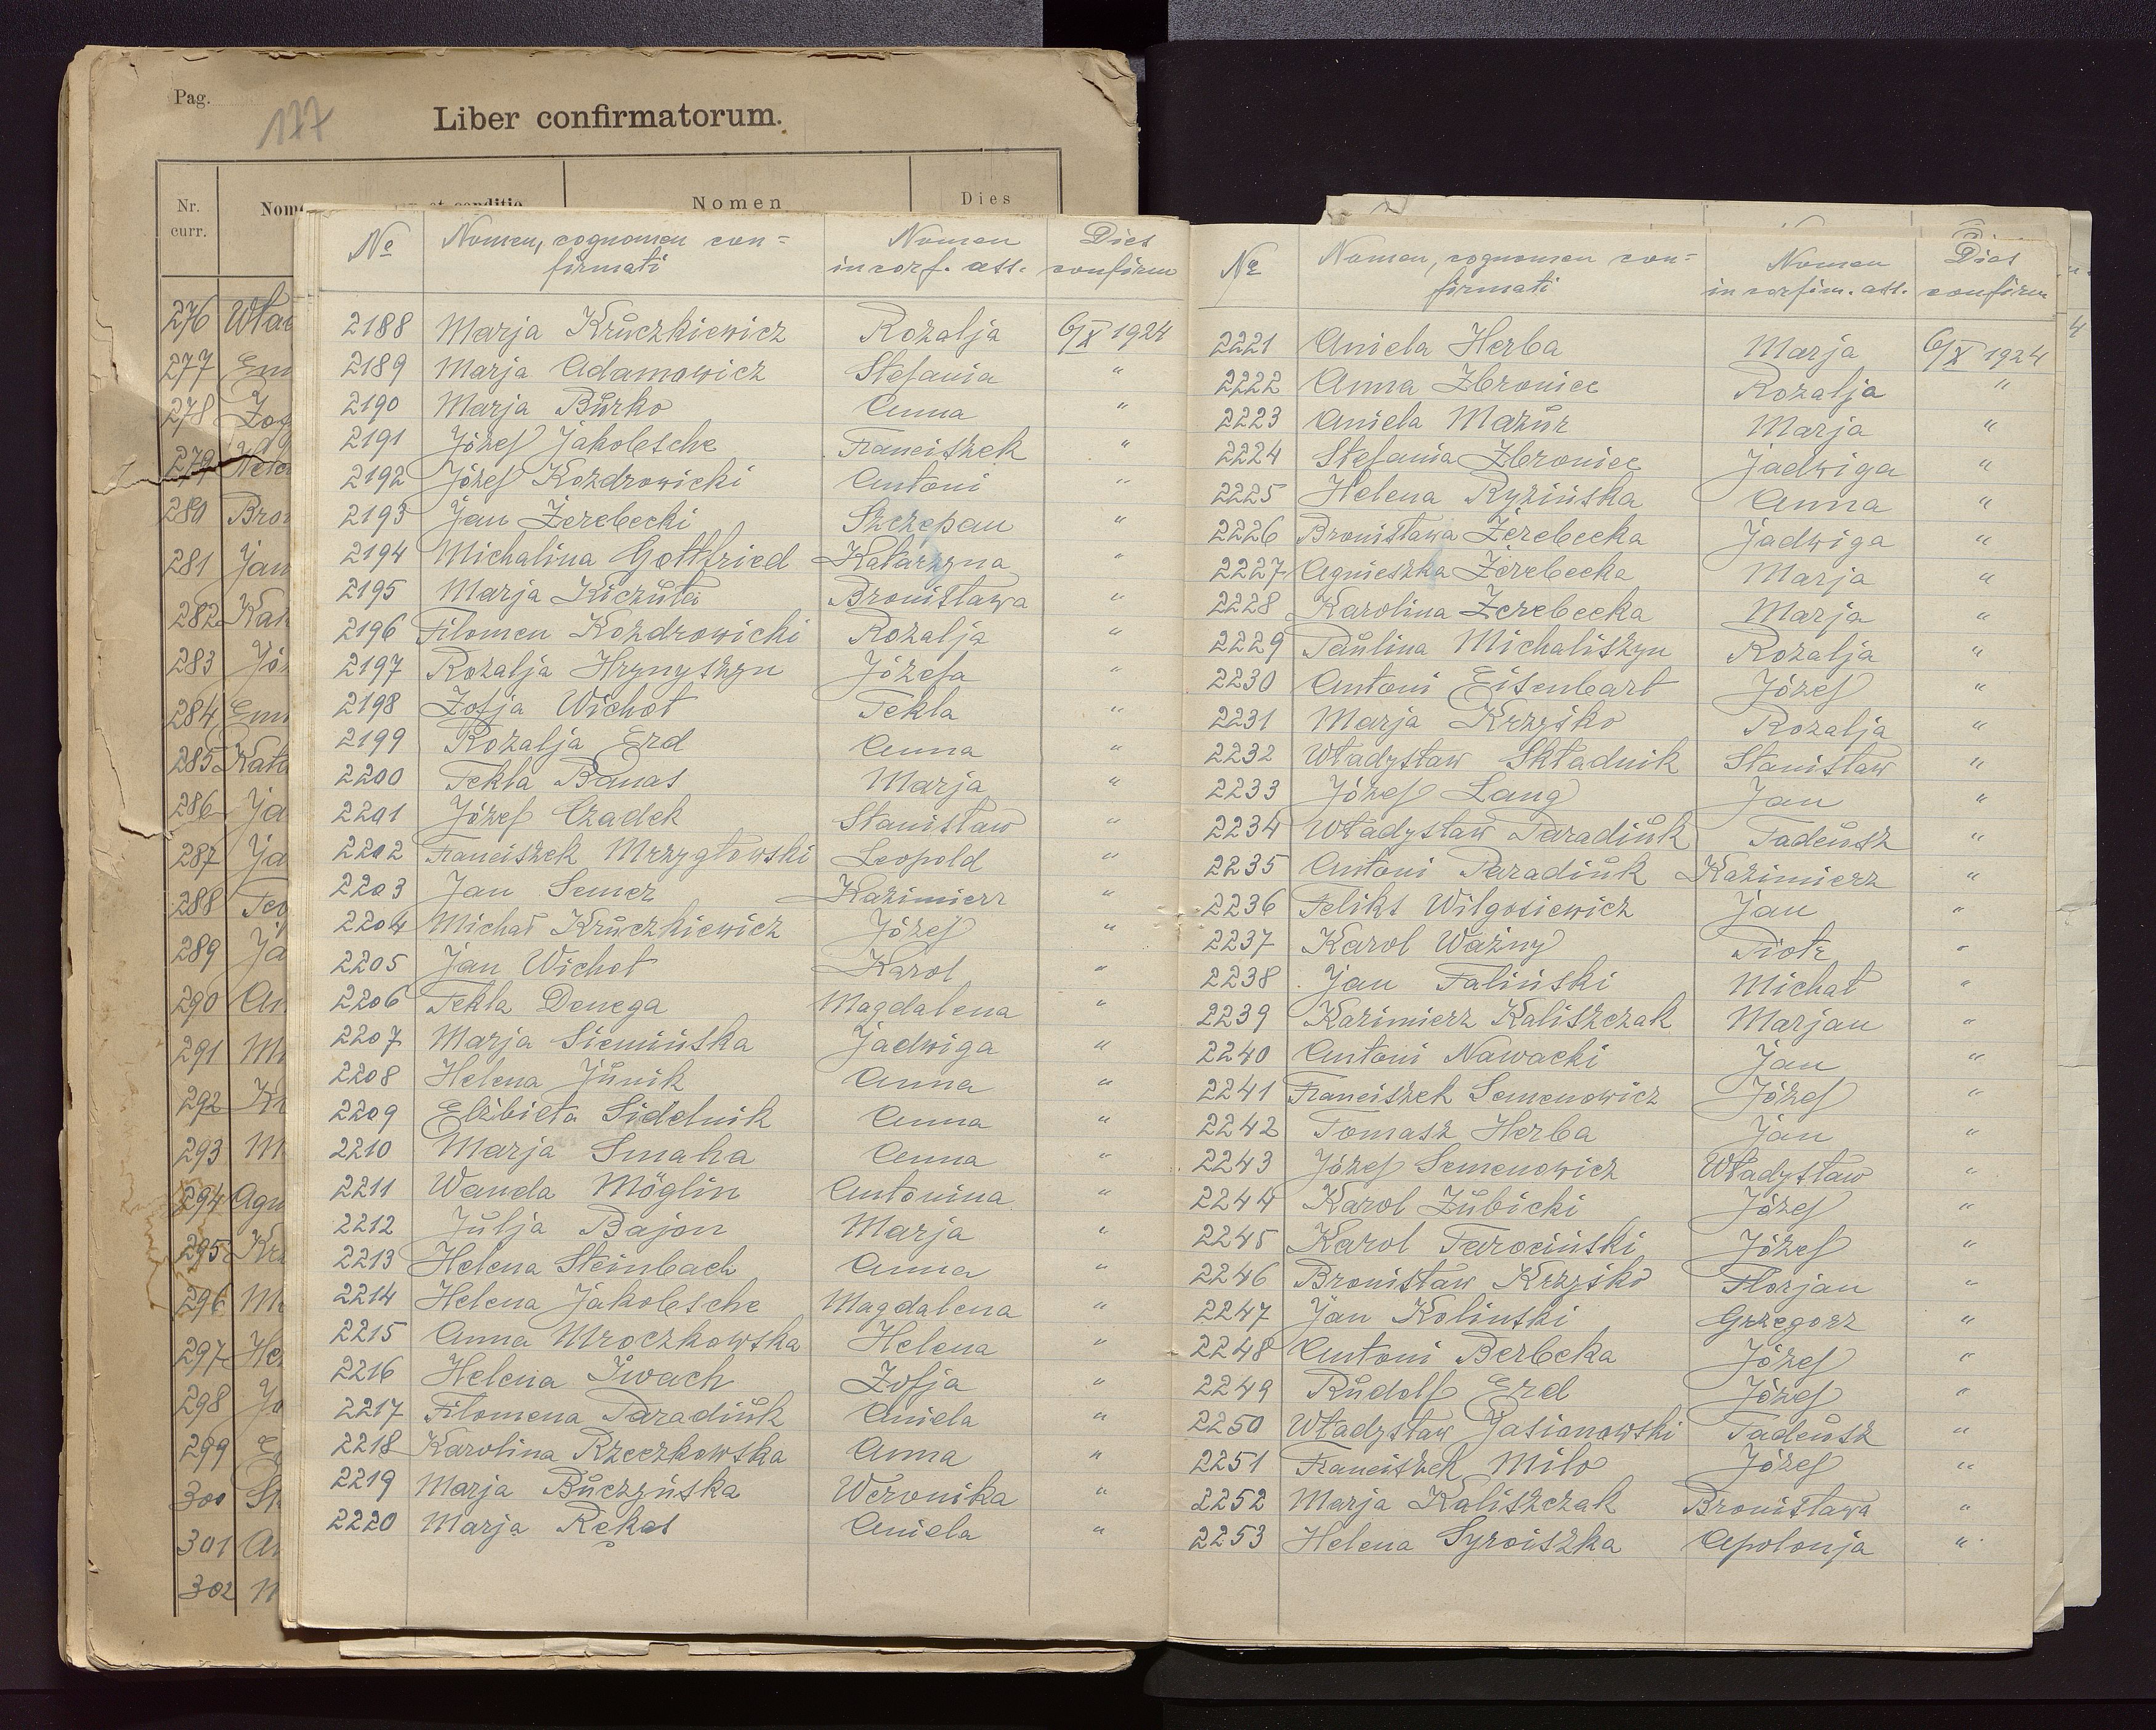 Pag.
177
Liber confirmatorum.
Nr.
curr.
Nomen
Dies
276
277
278
279
280
281
282
283
284
285
286
287
288
289
290
291
292
293
294
295
296
297
298
299
300
301
302
№ Nomen, cognomen con= Nomen Dies
firmati in conf. ass. confirm
2188 Marja Kruczkiewicz Rozalja 6/X 1924
2189 Marja Adamowicz Stefania "
2190 Marja Burko Anna "
2191 Józef Jakobsche Franciszek "
2192 Józef Kozdrowicki Antoni "
2193 Jan Żerebecki Szczepan "
2194 Michalina Gottfried Katarzyna "
2195 Marja Kiczuła Bronisława "
2196 Filomen Kozdrowicki Rozalja "
2197 Rozalja Hrynyszyn Józefa "
2198 Zofja Wichot Tekla "
2199 Rozalja Erd Anna "
2200 Tekla Banas Marja "
2201 Józef Czadek Stanisław "
2202 Franciszek Mrzygłowski Leopold "
2203 Jan Semez Kazimierz "
2204 Michał Kruczkiewicz Józef "
2205 Jan Wichot Karol "
2206 Tekla Denega Magdalena "
2207 Marja Siemińska Jadwiga "
2208 Helena Junik Anna "
2209 Elżbieta Sidelnik Anna "
2210 Marja Smaha Anna "
2211 Wanda Möglin Antonina "
2212 Julja Bajon Marja "
2213 Helena Steinbach Anna "
2214 Helena Jakobsche Magdalena "
2215 Anna Mroczkowska Helena "
2216 Helena Iwach Zofja "
2217 Filomena Paradiuk Aniela "
2218 Karolina Rzeczkowska Anna "
2219 Marja Buczyńska Weronika "
2220 Marja Rękas Aniela "
№ Nomen, cognomen con= Nomen Dies
firmati in confirm. ass. confirm
2221 Aniela Herba Marja 6/X 1924
2222 Anna Zbroniec Rozalja "
2223 Aniela Mazur Marja "
2224 Stefania Zbroniec Jadwiga "
2225 Helena Ryzińska Anna "
2226 Bronisława Żerebecka Jadwiga "
2227 Agnieszka Żerebecka Marja "
2228 Karolina Żerebecka Marja "
2229 Paulina Michaliszyn Rozalja "
2230 Antoni Eisenbart Józef "
2231 Marja Krzyśko Rozalja "
2232 Władysław Składnik Stanisław "
2233 Józef Lang Jan "
2234 Władysław Paradiuk Tadeusz "
2235 Antoni Paradiuk Kazimierz "
2236 Feliks Wilgosiewicz Jan "
2237 Karol Ważny Piotr "
2238 Jan Faliński Michał "
2239 Kazimierz Kaliszczak Marjan "
2240 Antoni Nawacki Jan "
2241 Franciszek Semenowicz Józef "
2242 Tomasz Herba Jan "
2243 Józef Semenowicz Władysław "
2244 Karol Zubicki Józef "
2245 Karol Tarociński Józef "
2246 Bronisław Krzyśko Florjan "
2247 Jan Kolinski Grzegorz "
2248 Antoni Berbeka Józef "
2249 Rudolf Erd Józef "
2250 Władysław Jasionowski Tadeusz "
2251 Franciszek Milo Józef "
2252 Marja Kaliszczak Bronisława "
2253 Helena Syroiszka Apolonja "